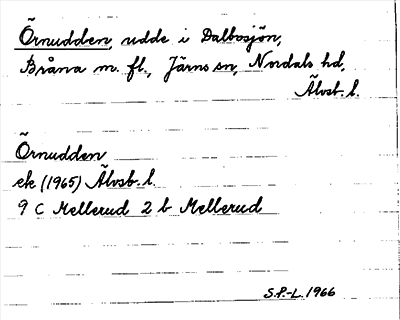 Örnudden, udde i Dalbosjön,
Bråna m. fl., Järns sn, Nordals hd,
Älvsb. l.
Örnudden
ek (1965) Älvsb. l.
9 C Mellerud 2 b Mellerud
S.P.-L. 1966